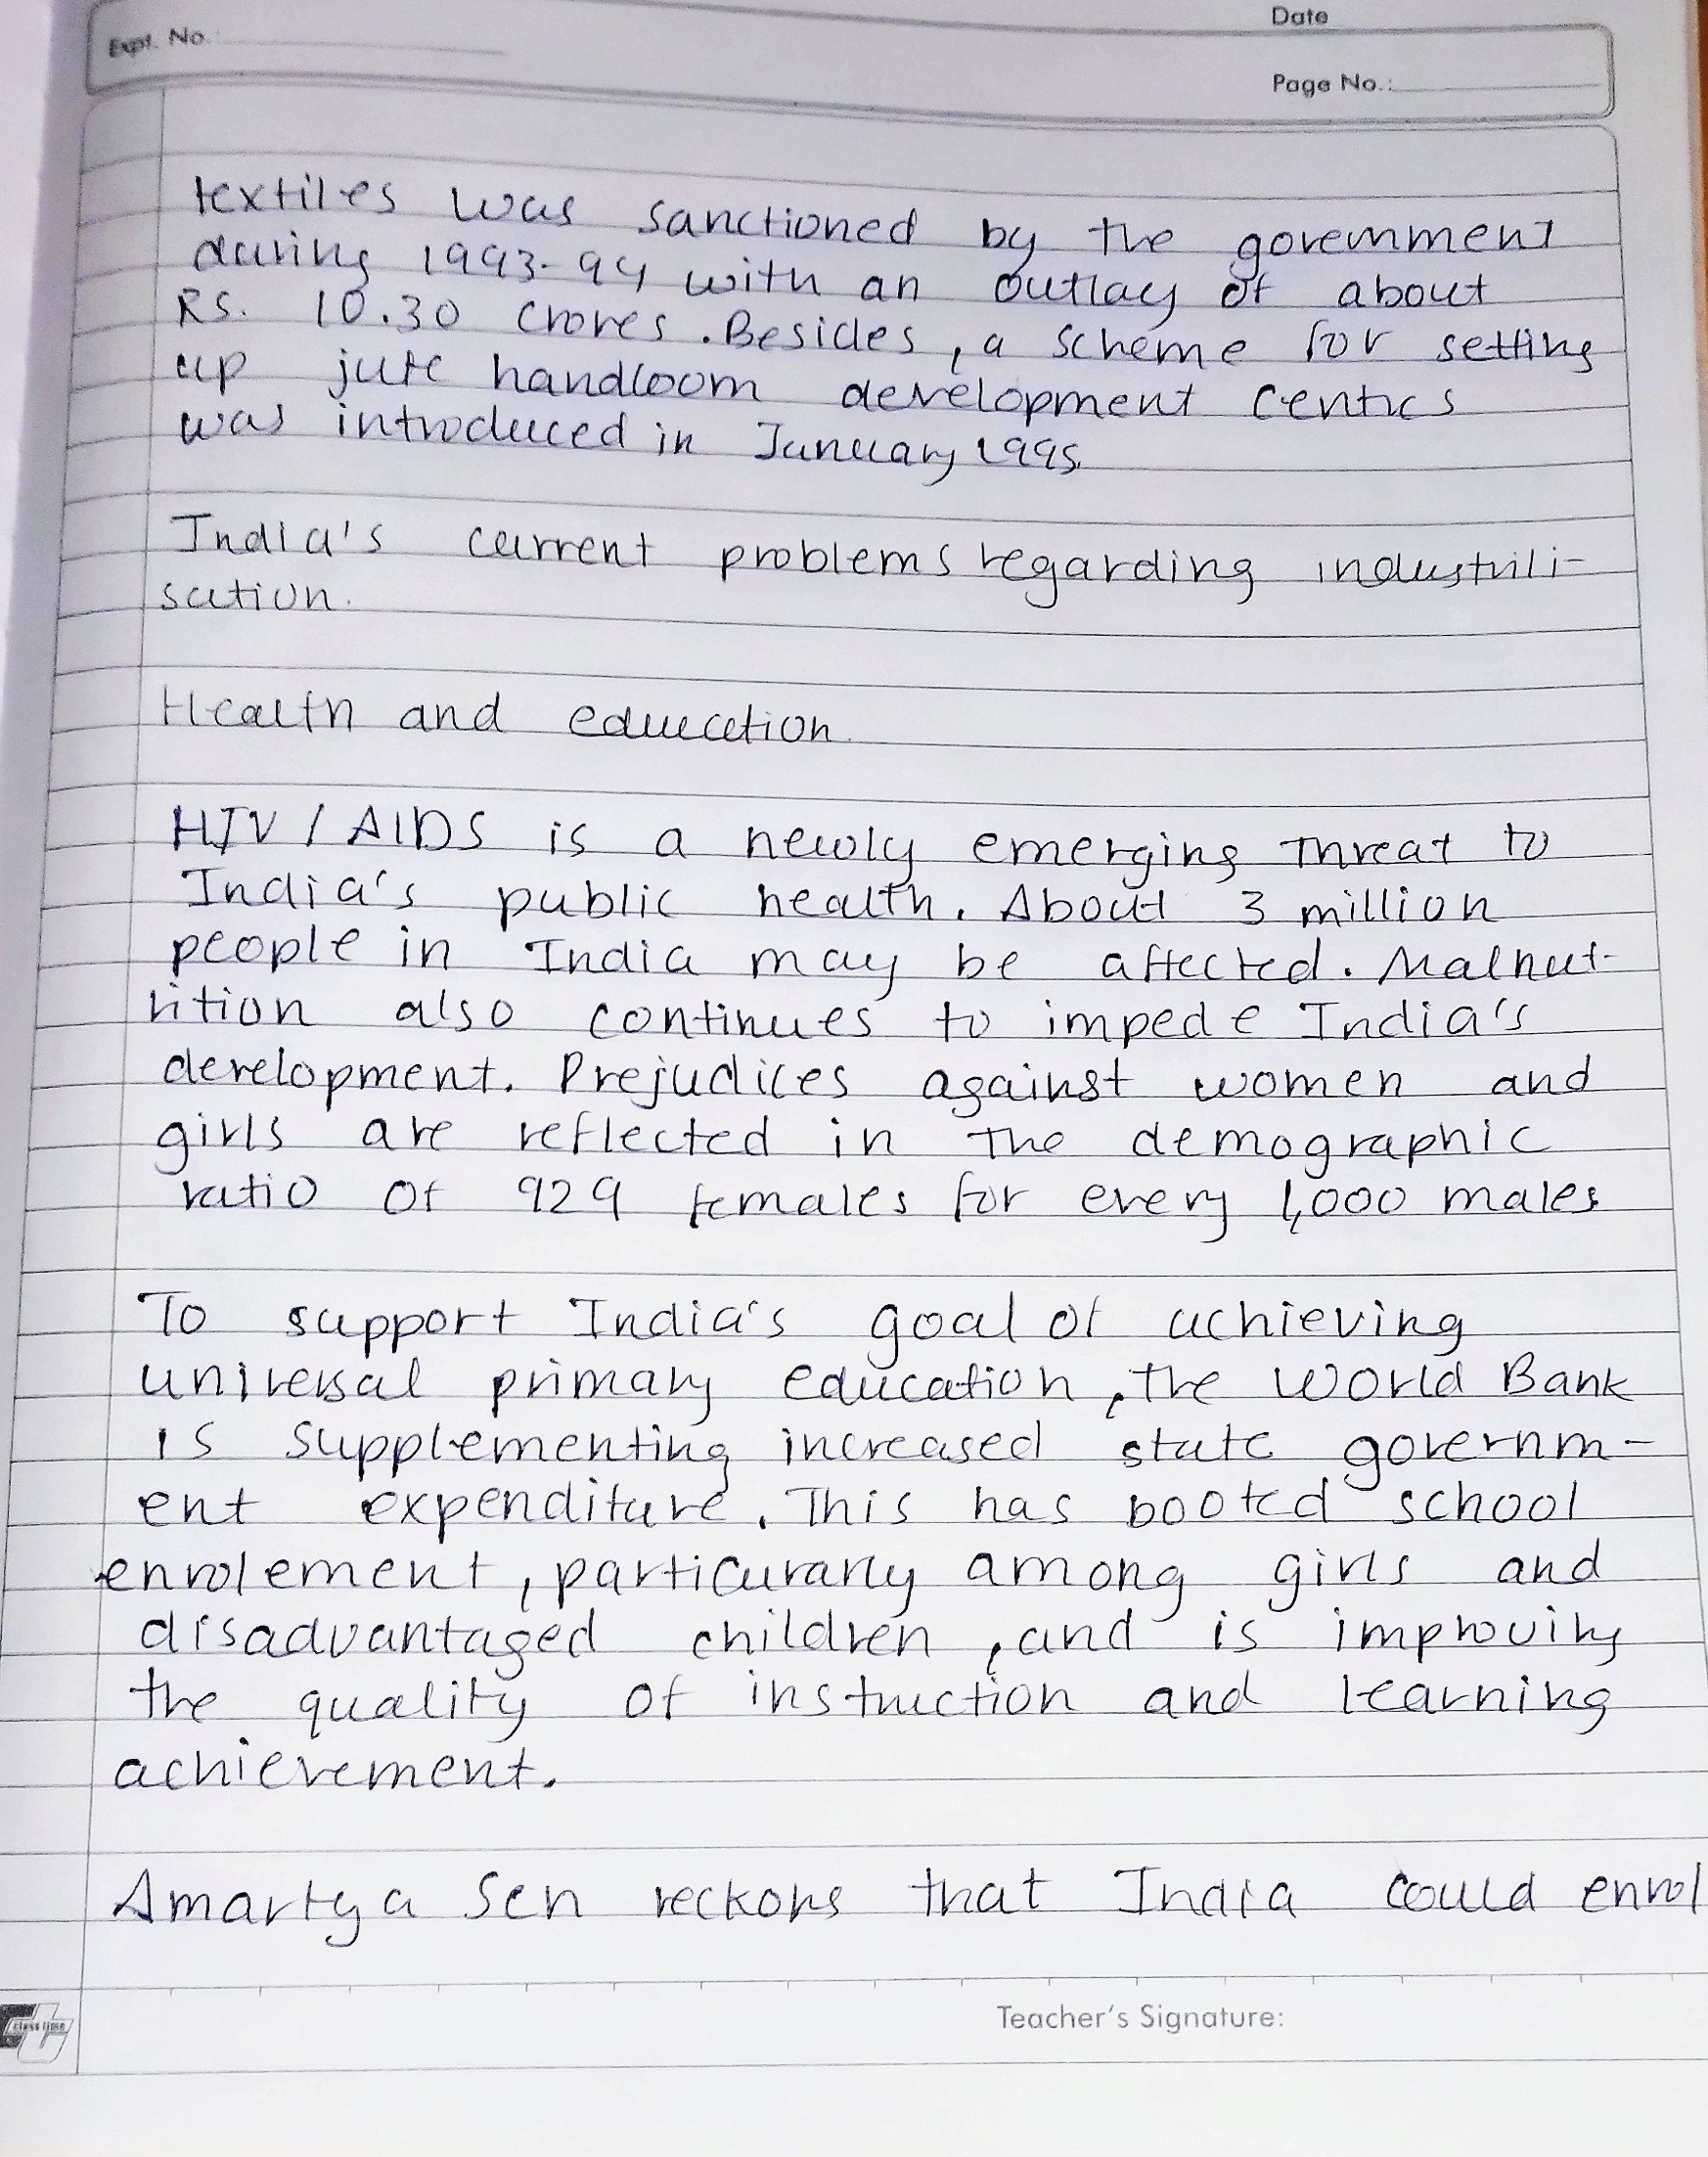 Expt. No.:
Date
Page No.:
textiles was sanctioned by the government
during 1993-94 with an outlay of about
RS. 10.30 crores. Besides, a scheme for setting
up jute handloom development centres
was introduced in January 1995.
India's current problems regarding industrili-
sation.
Health and education.
HIV / AIDS is a newly emerging threat to
India's public health. About 3 million
people in India may be affected. Malnut-
rition also continues to impede India's
development. Prejudices against women and
girls are reflected in the demographic
ratio of 929 females for every 1,000 males
To support India's goal of achieving
universal primary education, the World Bank
is supplementing increased state governm-
ent expenditure. This has booted school
enrolement, particurarly among girls and
disadvantaged children, and is improving
the quality of instruction and learning
achievement.
Amartya Sen reckons that India could enrol
Teacher's Signature:
class time